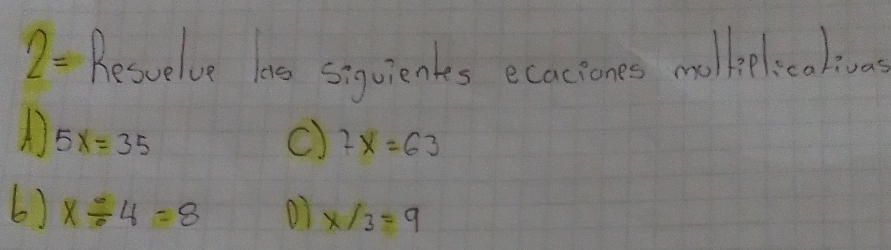 2= Resuelve las siguientes ecaciones multiplicativas
A) 5x=35 C) 7x=63
b) x÷4=8 D) x/3=9